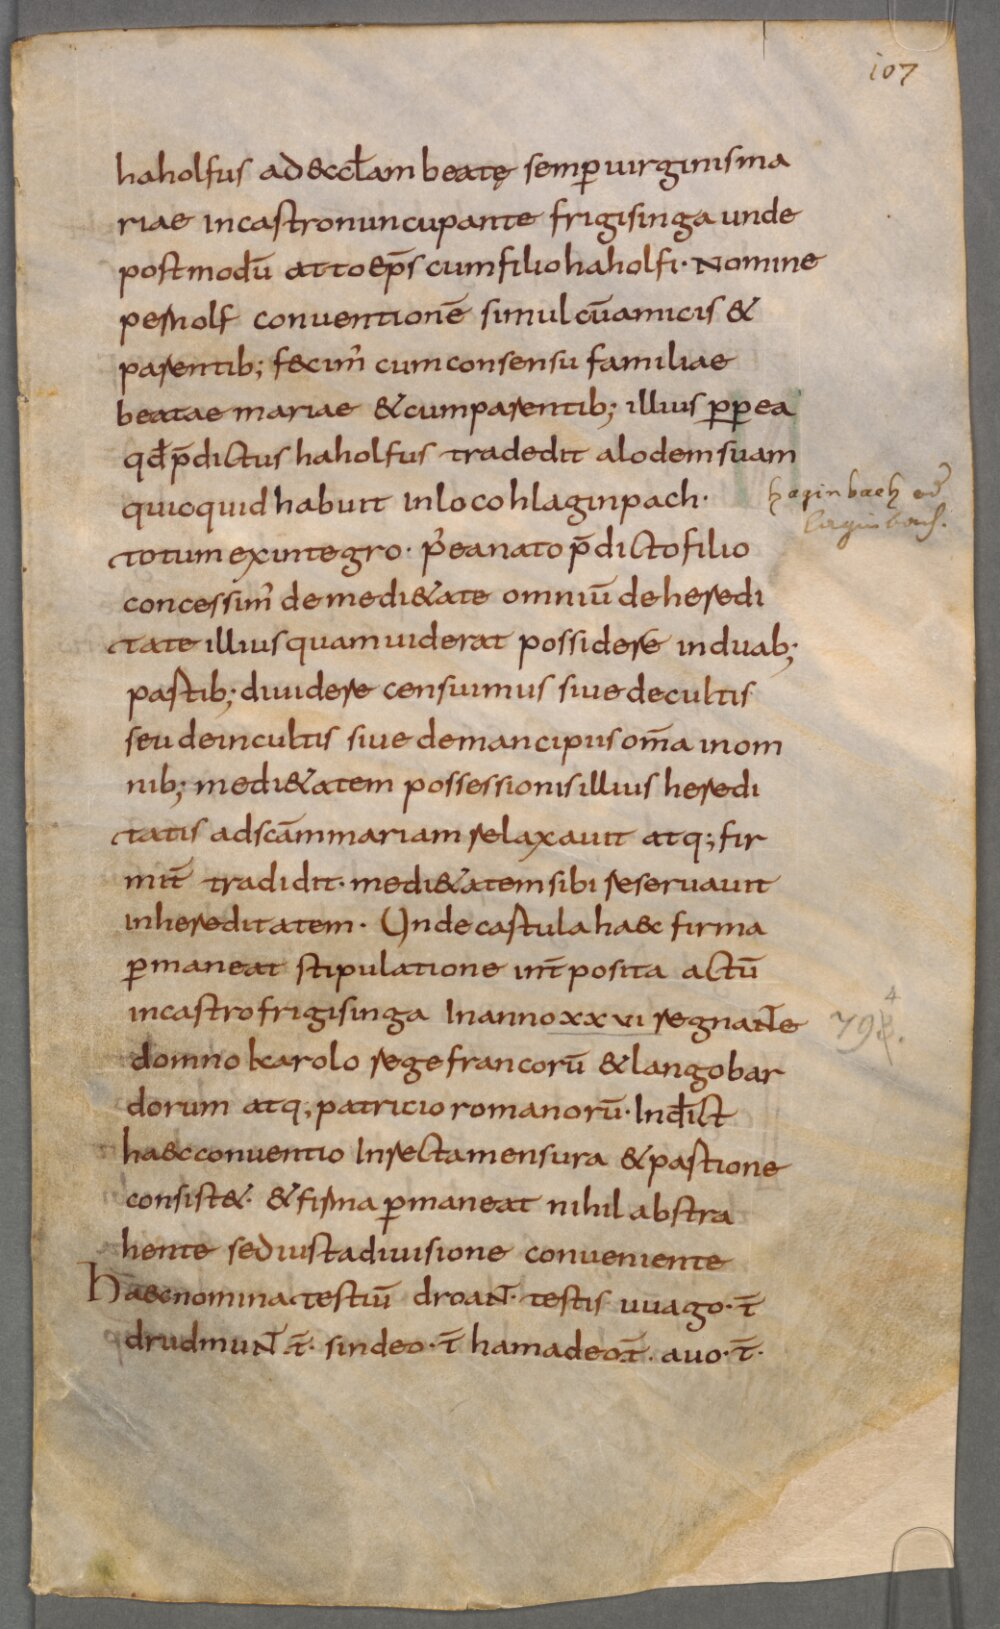 107
haholfus ad &ccl̄am beatę semp̄ uirginis ma
riae in castro nuncupante frigisinga unde
postmodū atto ep̄s cum filio haholfi· Nomine
pernolf conuentionē simul cū amicis &
parentib; fecim᾿ cum consensu familiae
beatae mariae & cum parentib; illius p̱p̱ ea
qd̄ p̄dictus haholfus tradedit alodem suam
quicquid habuit in loco hlaginpach·
haginbach od
laginbach.
totum ex integro· p᾿ea nato p̄dicto filio
concessim᾿ de medi&ate omniū de heredi
tate illius quam uiderat possidere in duab;
partib; diuidere censuimus siue de cultis
seu de incultis siue de mancipiis om̄a in om
nib; medi&atem possessionis illius heredi
tatis ad sc̄am mariam relaxauit atq; fir
mit̄ tradidit· medi&atem sibi reseruauit
in hereditatem· Unde cartula haec firma
p̱maneat stipulatione int̄posita actū
in castro frigisinga In anno xxvi regnan̄te
4
798.
domno karolo rege francorū & langobar
dorum atq; patricio romanorū· Ind̄ict
haec conuentio In recta mensura & partione
consist&· & firma p̱maneat nihil abstra
hente sed iusta diuisione conueniente
Haec nomina testiū droan̄t· testis uuago· t̄
drudmun̄t· t̄· sindeo· t̄ hamadeo t̄· auo· t̄·